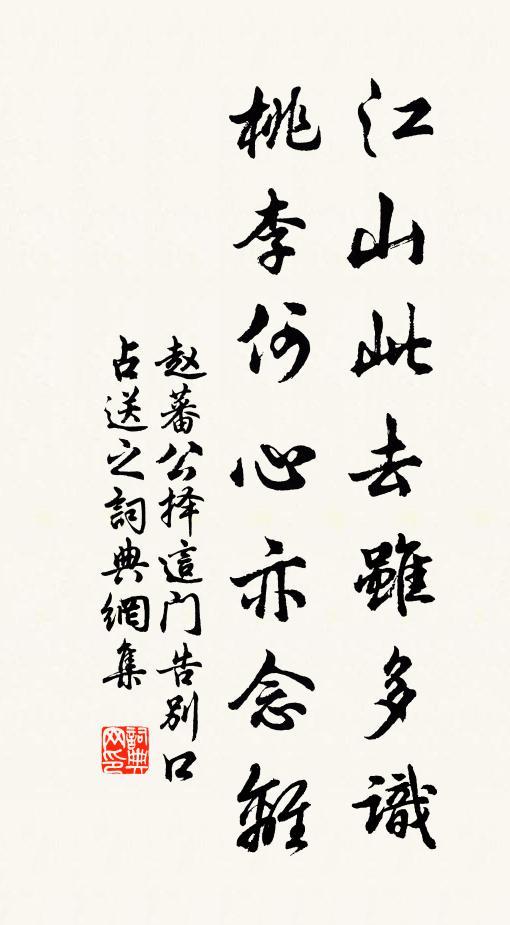 江山此去雖多識
桃李何心亦念離
赵蕃公择這门告别口
占送之詞典網集
詞典网印